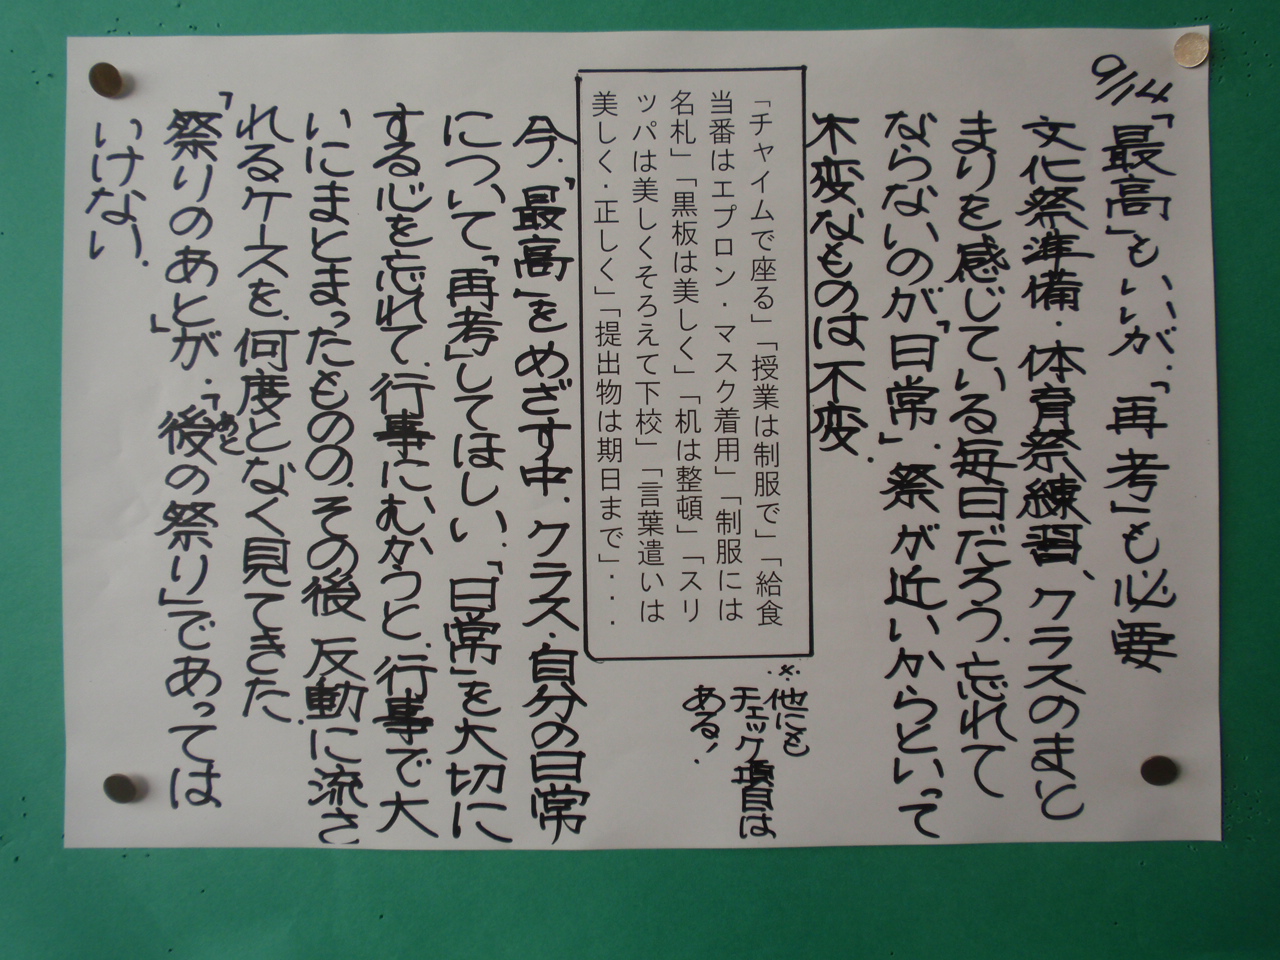 9/14
「最高」もいいが、「再考」も必要
文化祭準備・体育祭練習、クラスのまと
まりを感じている毎日だろう、忘れて
ならないのが「日常」、祭が近いからといって
不変なものは不変、
「チャイムで座る」「授業は制服で」「給食
当番はエプロン・マスク着用」「制服には
名札」「黒板は美しく」「机は整頓」「スリ
ッパは美しくそろえて下校」「言葉遣いは
美しく・正しく」「提出物は期日まで」・・・
※他にも
チェック項目は
ある！
今、「最高」をめざす中、クラス・自分の日常
について「再考」してほしい、「日常」を大切に
する心を忘れて、行事にむかうと、行事で大
いにまとまったものの、その後 反動に流さ
れるケースを、何度となく見てきた、
「祭りのあと」が、「後の祭り」であっては
あと
いけない、